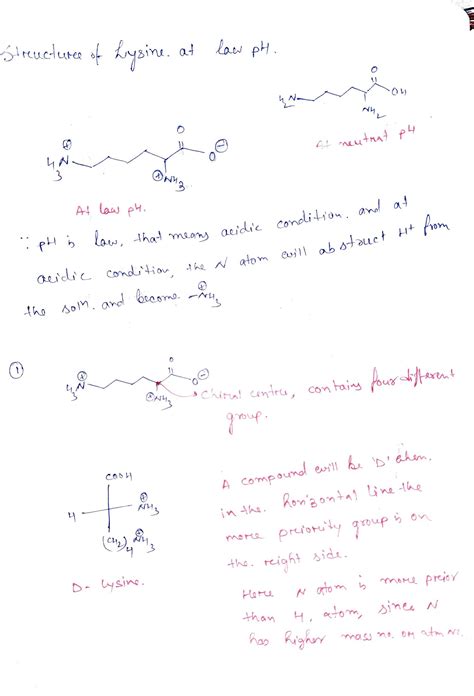 Structure of Lysine at low pH.
O
OH
H2N
NH2
At neutral pH
O
O ⊖
H3N ⊕
⊕ NH3
At low pH.
∵ pH is low, that means acidic condition. and at
acidic condition, the N atom will abstract H+ from
the soln. and become -NH3 ⊕
①
O
O ⊖
H3N ⊕
⊕ NH3
Chiral centre, contains four different
group.
COOH
H
NH3 ⊕
(CH2)4 NH3 ⊕
D- Lysine.
A compound will be 'D' when,
in the horizontal line the
more preiority group is on
the reight side.
Here N atom is more prior
than H, atom, since N
has higher mass no. or atm no.